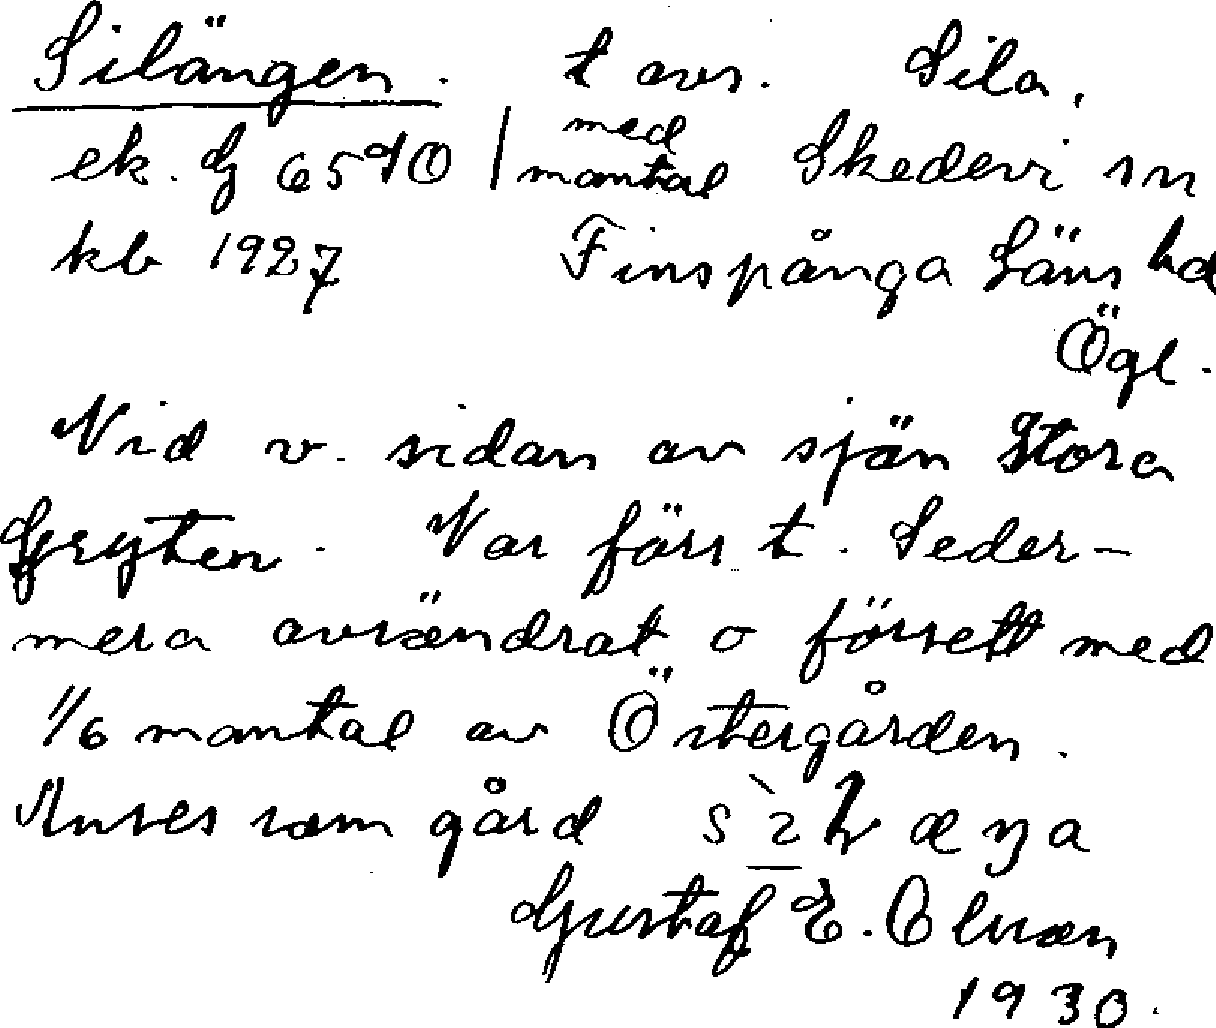 Silängen. t avs. Sila,
ek. G 65 90 | med mantal Skedevi sn
kb 1927 Finspånga Läns hd
Ögl.
Vid v. sidan av sjön Stora
Gryten. Var förs t. Seder-
mera avsöndrat o försett med
1/6 mantal av Östergården.
Anses som gård
Gustaf E. Olsson
1930.